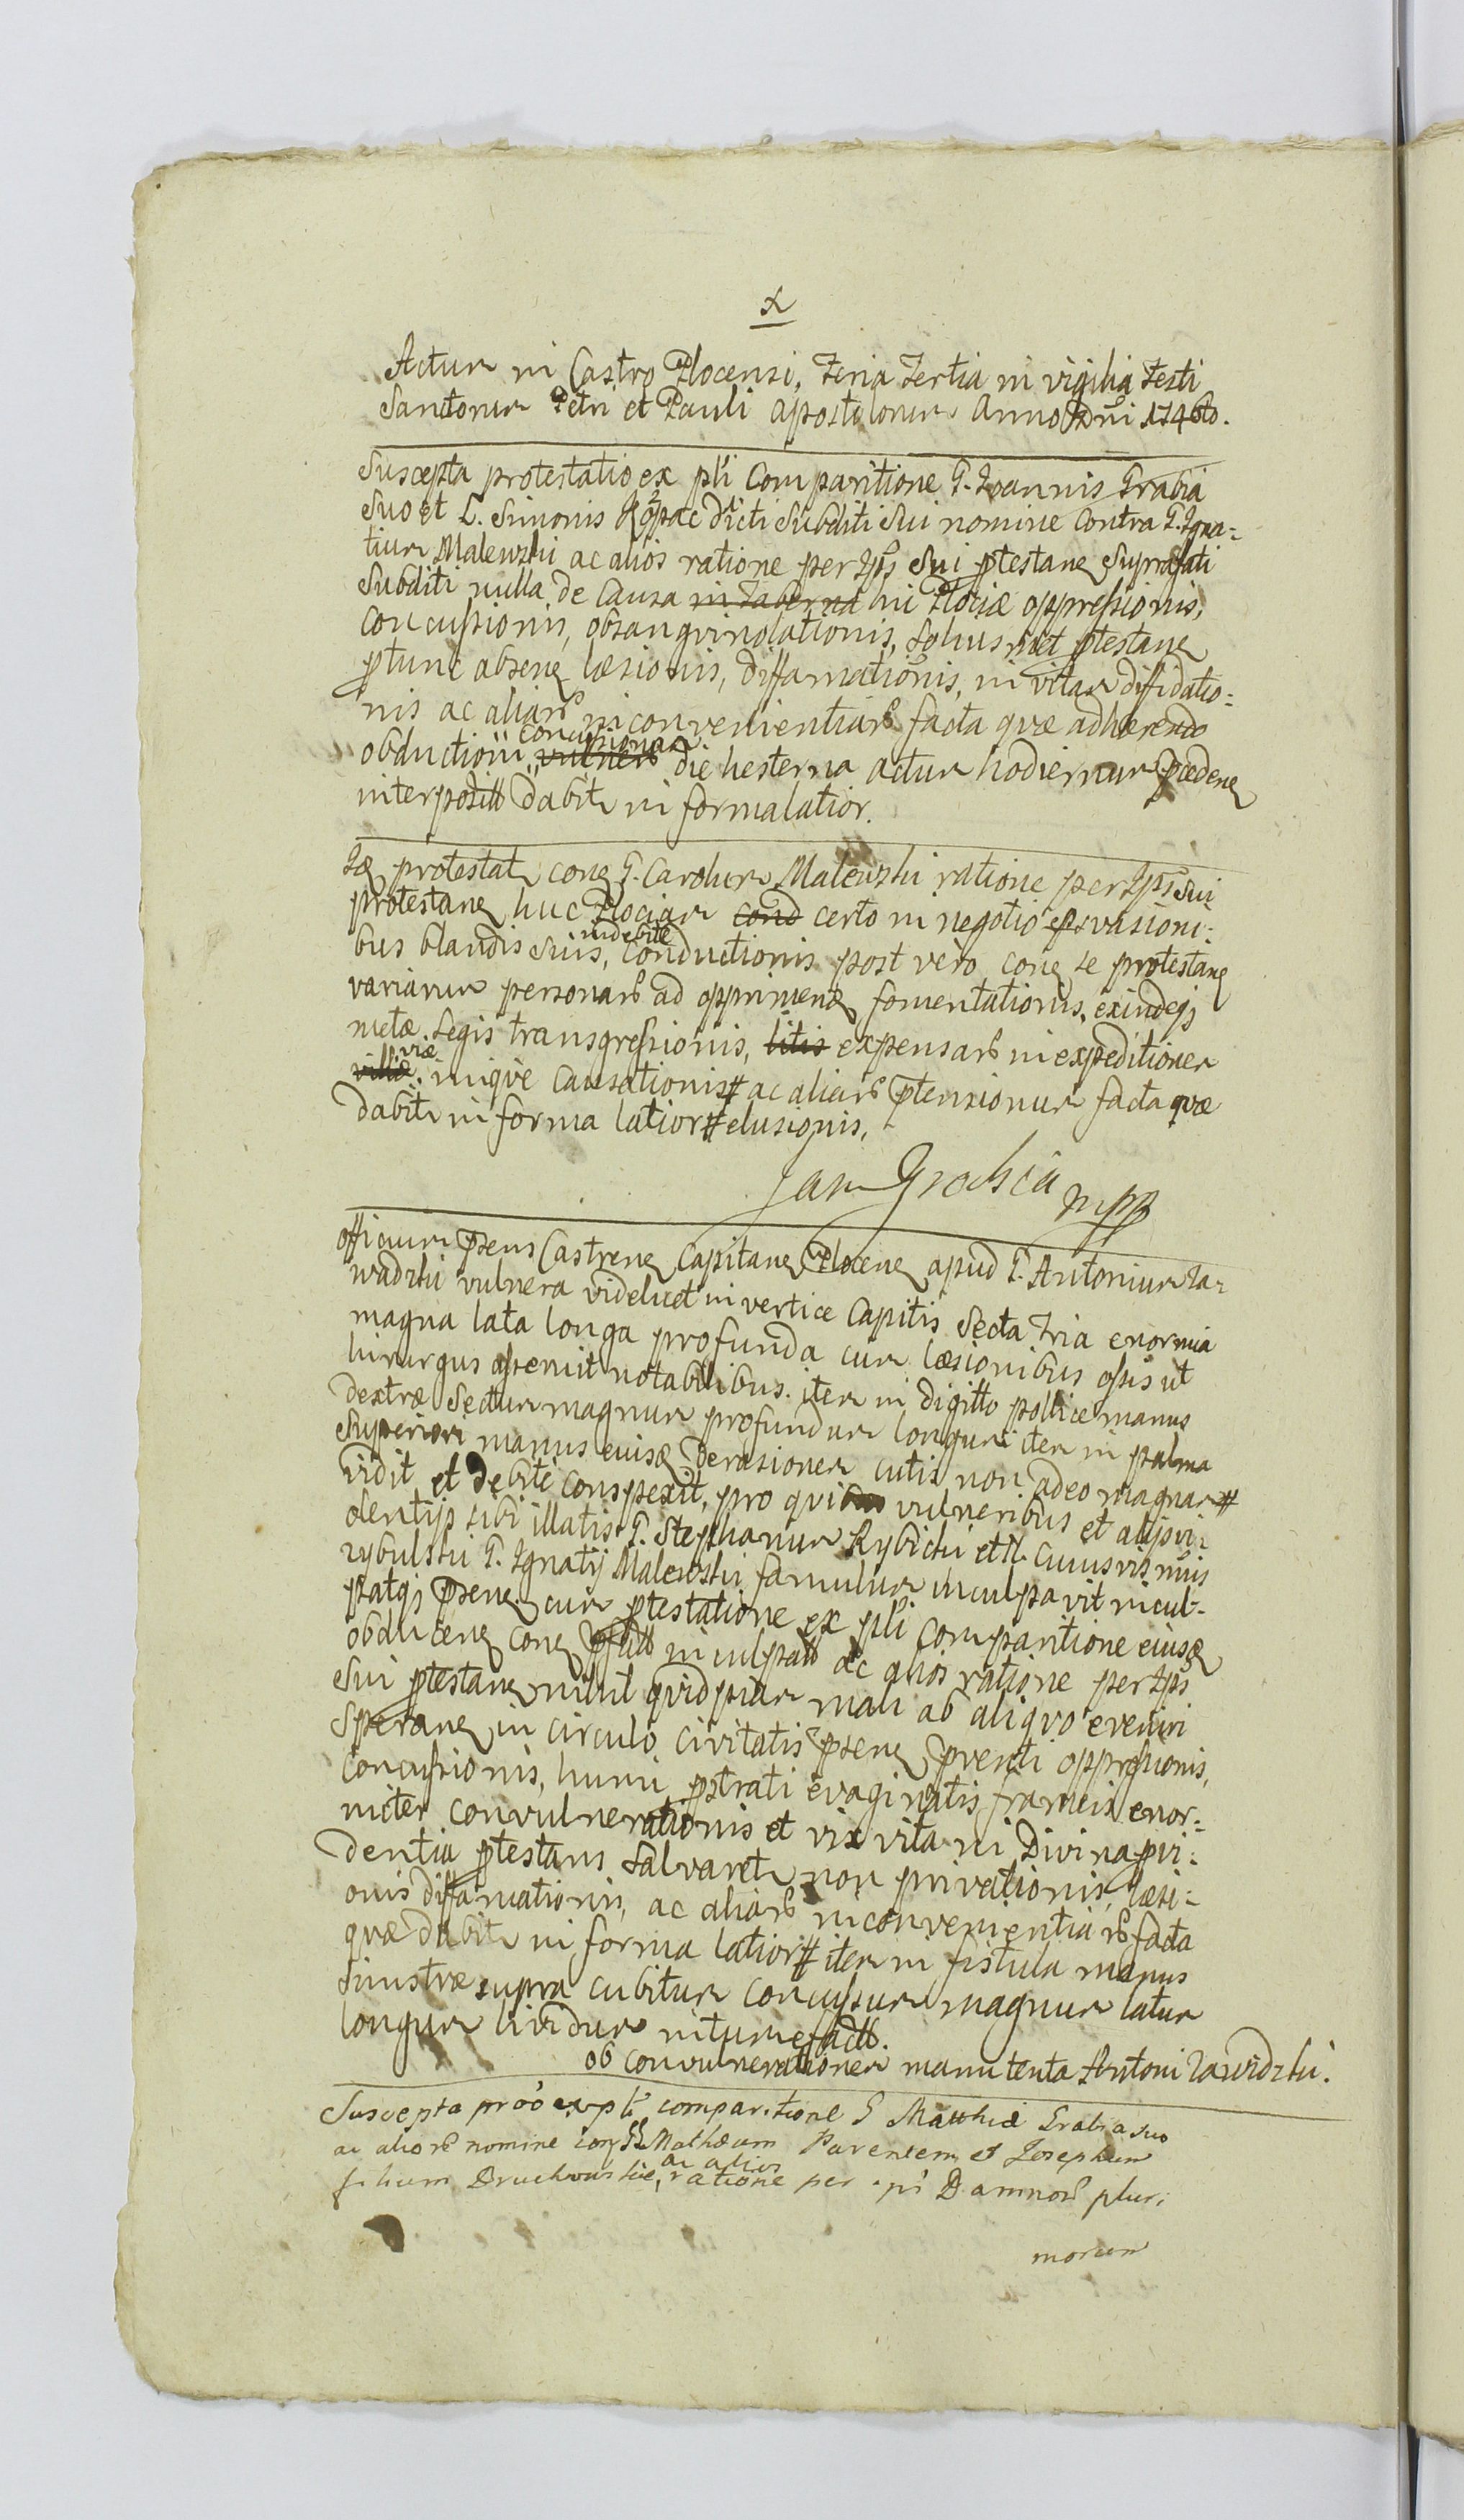 Actum in Castro Plocensi, Feria Tertia in vigilia Festi
Sanctorum Petri et Pauli Apostolorum Anno Dni 1746to.
Suscepta protestatio ex pli Comparitione G. Joannis Grabia
suo et L. Simonis dicti Subditi sui nomine contra G. Igna-
tium Malewski ac alios ratione per Ips Sui ptestane Suprafati
Subditi nulla de Causa in Taberna hic Plociæ oppressionis,
Concussionis, obsangvinolationis, Solius met ptestane
ptunc absene læsionis, diffamationis, in vitam diffidatio-
nis ac aliarum inconvenientiarum facta quæ adhærendo
obductioni concussionum vulnerum die hesterna actum hodiernum præcedene
interposittæ dabitr in forma latiori.
Idem protestatr cone G. Carolum Malewski ratione per Ips sui
protestane huc Plociam cond certo in negotio psvasioni-
bus blandis suis, indebitæ conductionis post vero cone se protestane
variarum personarum ad opprimend fomentationis, exindeqz
metæ Legis transgressionis, litis expensarum in expeditionem
villæ viæ iniqve Causationis # ac aliarum ptensionum facta quæ
dabitr in forma latiori # elusionis,
Jan Grabia mpp
Officium psens Castrene Capitane Plocene apud G. Antonium Za-
wadzki vulnera videlicet in vertice Capitis Secta tria enormia
magna lata longa profunda cum læsionibus ossis ut
hirurgus asseruit notabilibus. item in digitto pollice manus
dextræ Sectum magnum profundum longum item in palma
Superiori manus eiusd derasionem cutis non adeo magnam #
vidit et debite conspexit, pro quibus vulneribus et alijs vi-
olentijs sibi illatis G. Stephanum Rybicki et N. cuiusvis nnis
zybulski G. Ignatij Malewski famulum inculpavit incul-
patqz psene cum ptestatione ex pli Comparitione eiusd
obducene cone psfattos inculpattos ac alios ratione per Ips
Sui ptestane nihil qvidpiam mali ab aliqvo eveniri
Sperane in circulo civitatis psene pventi oppressionis,
concussionis, humi pstrati evaginatis frameis enor-
miter convulnerationis et vix vita ni Divina pvi-
dentia ptestans Salvaretr non privationis, læsi-
onis diffamationis, ac aliarum inconvenientiarum facta
quæ dabitr in forma latiori # item in fistula manus
sinistræ supra cubitum concussum magnum latum
longum lividum intumefactum.
ob convulnerationem manu tenta Antoni Zawadzki.
Suscepta pro ex pli comparitione G Matthiæ Grabia suo
ac aliorum nomine cone GG Mathæum Parentem et Josephum
filium Bruchowskie, ac alios ratione per ips Damnorum pluri
morum